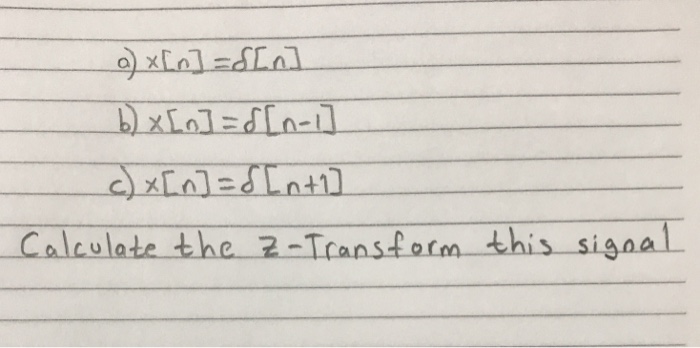 a) x[n] = δ[n]
b) x[n] = δ[n-1]
c) x[n] = δ[n+1]
Calculate the z-Transform this signal